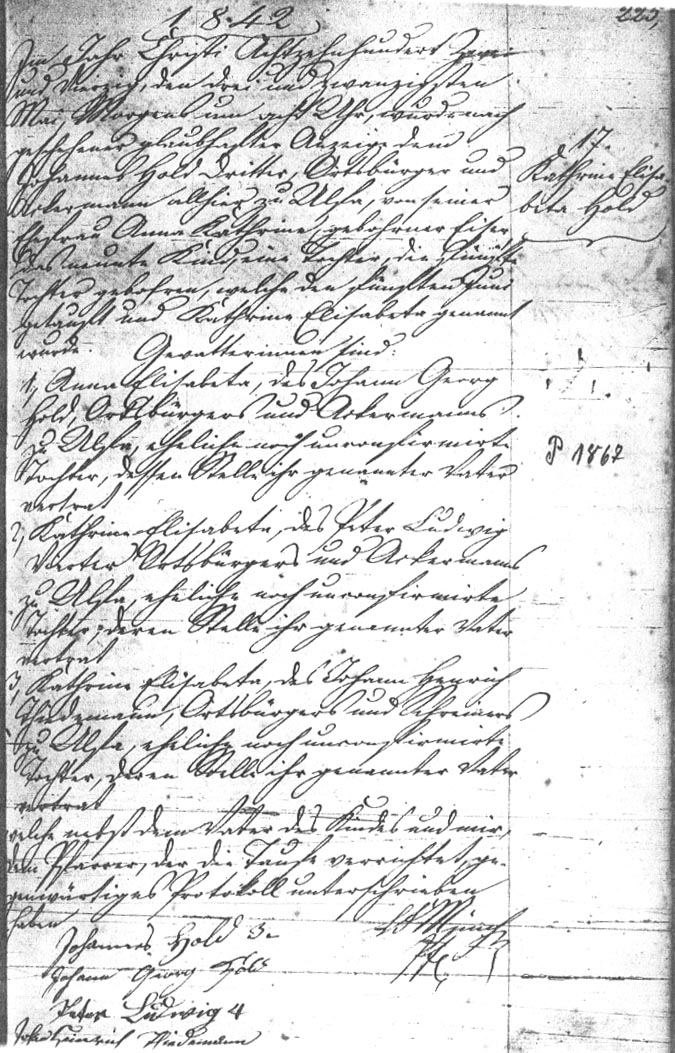 1842
225,
Im Jahr Christi Achtzehnhundert Zwei
und Vierzig, den drei und zwanzigsten
Mai, Morgens um acht Uhr, wurde nach
geschehener glaubhafter Anzeige dem
Johannes Hold Dritter, Ortsbürger und
Ackermann allhier zu Ulfa, von seiner
Ehefrau Anna Kathrine, gebohrner Eiser
das neunte Kind, eine Tochter, die fünfte
Tochter gebohren, welche den fünften Juni
getauft und Kathrine Elisabeta genannt
wurde. Gevatterinnen sind:
1, Anna Elisabeta, des Johann Georg
Hold, Ortsbürgers und Ackermanns
zu Ulfa, eheliche noch unconfirmirte
Tochter, dessen Stelle ihr genannter Vater
vertrat
2, Kathrine Elisabeta, des Peter Ludwig
Vierter Ortsbürgers und Ackermanns
zu Ulfa, eheliche noch unconfirmirte
Tochter, deren Stelle ihr genannter Vater
vertrat
3, Kathrine Elisabeta, des Johann Henrich
Thiedemann, Ortsbürgers und Schreiners
zu Ulfa, eheliche noch unconfirmirte
Tochter, deren Stelle ihr genannter Vater
vertrat
welche nebst dem Vater des Kindes und mir,
dem Pfarrer, der die Taufe verrichtet, ge-
genwärtiges Protokoll unterschrieben
haben
Johannes Hold 3.
Johann Georg Hold
Peter Ludwig 4
Johan Heinrich Thiedemann
Münch
Pf.
17.
Kathrine Elisa-
beta Hold
P 1867